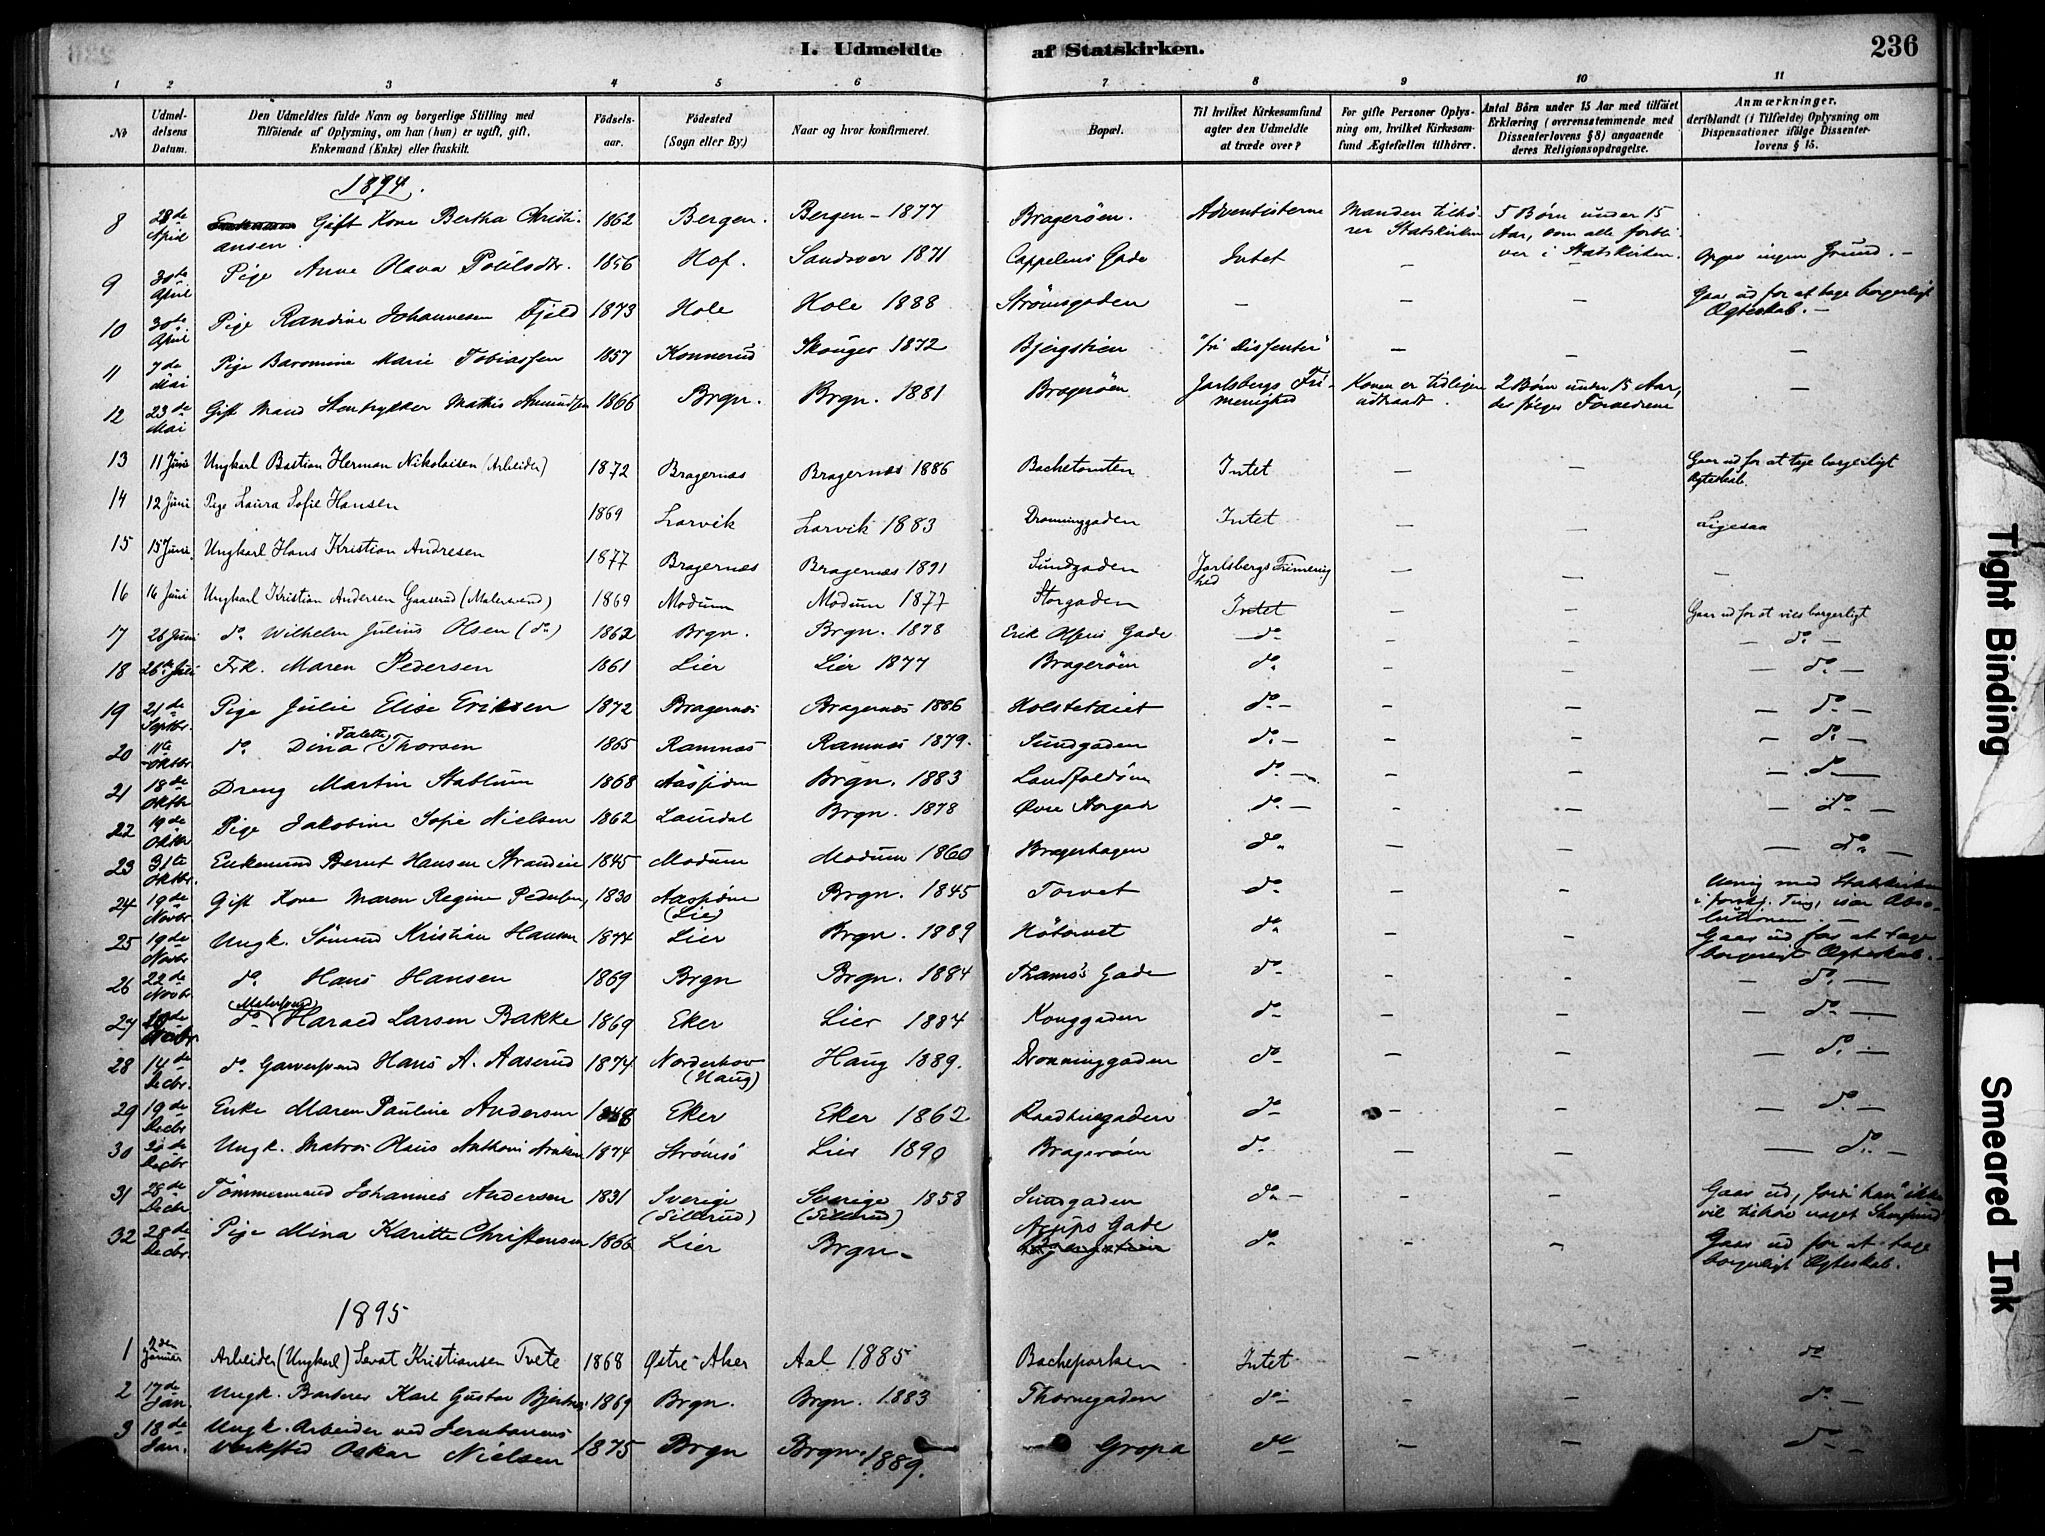 I. Udmeldte af Statskirken. 236
1 2 3 4 5 6 7 8 9 10 11
No Udmeldelsens Datum. Den Udmeldtes fulde Navn og borgerlige Stilling med Tilføiende af Oplysning, om han (hun) er ugift, gift, Enkemand (Enke) eller fraskilt. Fødselsaar. Fødested (Sogn eller By.) Naar og hvor konfirmeret. Bopæl. Til hvilket Kirkesamfund agter den Udmeldte at træde over? For gifte Personer Oplysning om, hvilket Kirkesamfund Ægtefællen tilhører. Antal Børn under 15 Aar med tilføiet Erklæring (overensstemmende med Dissenterlovens § 8) angaaende deres Religionsopdragelse. Anmærkninger, deriblandt (i Tilfælde) Oplysning om Dispensationer ifølge Dissenterlovens § 15.
1894.
8 28de April Gift Kone Bertha Christiansen 1862 Bergen. Bergen - 1877 Bragerøen. Adventisterne Manden tilhører Statskirken 5 Børn under 15 Aar, som alle forbliver i Statskirken.
9 30te April Pige Anne Olava Poulsdtr. 1856 Hof. Sandsvær 1871 Cappelens Gade Intet - - Opgav ingen Grund. -
10 30te April Pige Randine Johannesen Fjeld 1873 Hole Hole 1888 Strømsgaden - - - Gaar ud for at tage borgerligt Ægteskab. -
11 7de Mai Pige Marie Tobiassen 1857 Konnerud Skouger 1872 Bjergstien "fri Dissenter" - - -
12 23de Mai Gift Mand Stentrykker Mathis Amundsen 1866 Brgn. Brgn. 1881 Bragerøen Jarlsbergs Frimenighed Konen er tidligere udtraadt. 2 Børn under 15 Aar, der følger Forældrene -
13 11 Juni Ungkarl Bastian Herman Nikolaisen (Arbeider) 1872 Bragernæs Bragernæs 1886 Bachetomten Intet - - Gaar ud for at tage borgerligt Ægteskab.
14 12 Juni Pige Laura Sofie Hansen 1869 Larvik Larvik 1883 Dronninggaden Intet - - Ligesaa
15 15 Juni. Ungkarl Hans Kristian Andresen 1877 Bragernæs Bragernæs 1891 Sundgaden Jarlsbergs Frimenighed - - -
16 16 Juni Ungkarl Kristian Andersen Gaaserud (Malersvend) 1869 Modum Modum 1877 Storgaden Intet - - Gaar ud for at vies borgerligt
17 26 Juni do. Wilhelm Julius Olsen (do) 1862 Brgn. Brgn. 1878 Erik Olsens Gade do - - - do. -
18 26de Juli Frk. Maren Pedersen 1861 Lier Lier 1877 Bragerøen do. - - - do. -
19 21de Septbr. Pige Julie Elise Eriksen 1872 Bragernæs Bragernæs 1886 Holstetøiet do - - - - do -
20 11te Oktbr. do. Dina Talette Thorsen 1865 Ramnæs Ramnæs 1879. Sundgaden do. - - - - do. -
21 18de Oktbr Dreng Martin Stablum 1868 Aassiden Brgn. 1883 Landfaldøen do. - - - - do. -
22 19de Oktbr Pige Jakobine Sofie Nielsen 1862 Laurdal Brgn. 1878 Øvre Storgad do. - - - - do. -
23 31te Oktbr. Enkemand Bernt Hansen 1845 Modum Modum 1860 Bragerhagen do. - - - do. -
24 19de Novbr. Gift Kone Maren Regine Pedersen, 1830 Aassiden (Lier) Brgn. 1845 Torvet do - - Uenig med Statskirken i forskj. Ting, især Absolutionen. -
25 19de Novbr Ungk. Kristian Hansen 1874 Lier Brgn. 1889 Høtorvet do - - Gaar ud for at tage borgerligt Ægteskab. -
26 22de Novbr do. Hans Hansen 1869 Brgn Brgn. 1884 Thams's Gade do - - - do. -
27 do (Malersvend) Harald Larsen Bakke 1869 Eker Lier 1884 Konggaden do - - - do -
28 14de Decbr. do. Garversvend Hans A. Aaserud 1874 Norderhov (Haug) Haug 1889. Dronninggaden do - - - do. -
29 19de Decbr Enke Maren Pauline Andersen 1848 Eker Eker 1862 Raadhusgaden do - - - do. -
30 Decbr Ungk. Matros Olaus Anthoni 1874 Strømsø Lier 1890 Bragerøen do - - - do. -
31 28de Decbr Tømmermand Johannes Andersen 1831 Sverige (Sillerud) Sverige (Sillerud) 1858 Sundgaden do. - - - Gaar ud, fordi han ikke vil tilhøre noget Samfund
32 28de Decbr. Pige Mina Karette Christensen 1866 Lier Brgn. Arups Gade do - - Gaar ud for at tage borgerligt Ægteskab.
1895
1 2den Januar Arbeider (Ungkarl) Sevat Kristiansen Tvete 1868 Østre Aker Aal 1885 Bacheparken Intet - - do
2 17de Jan Ungk. Barberer Karl Gustav 1869 Brgn. Brgn. 1883 Thornegaden do - - - do. -
3 18de Jan. Ungk. Arbeider ved Jernbanens Verksted Oskar Nielsen 1875 Brgn Brgn. 1889. Gropa do - - do -
Tight Binding
Smeared Ink